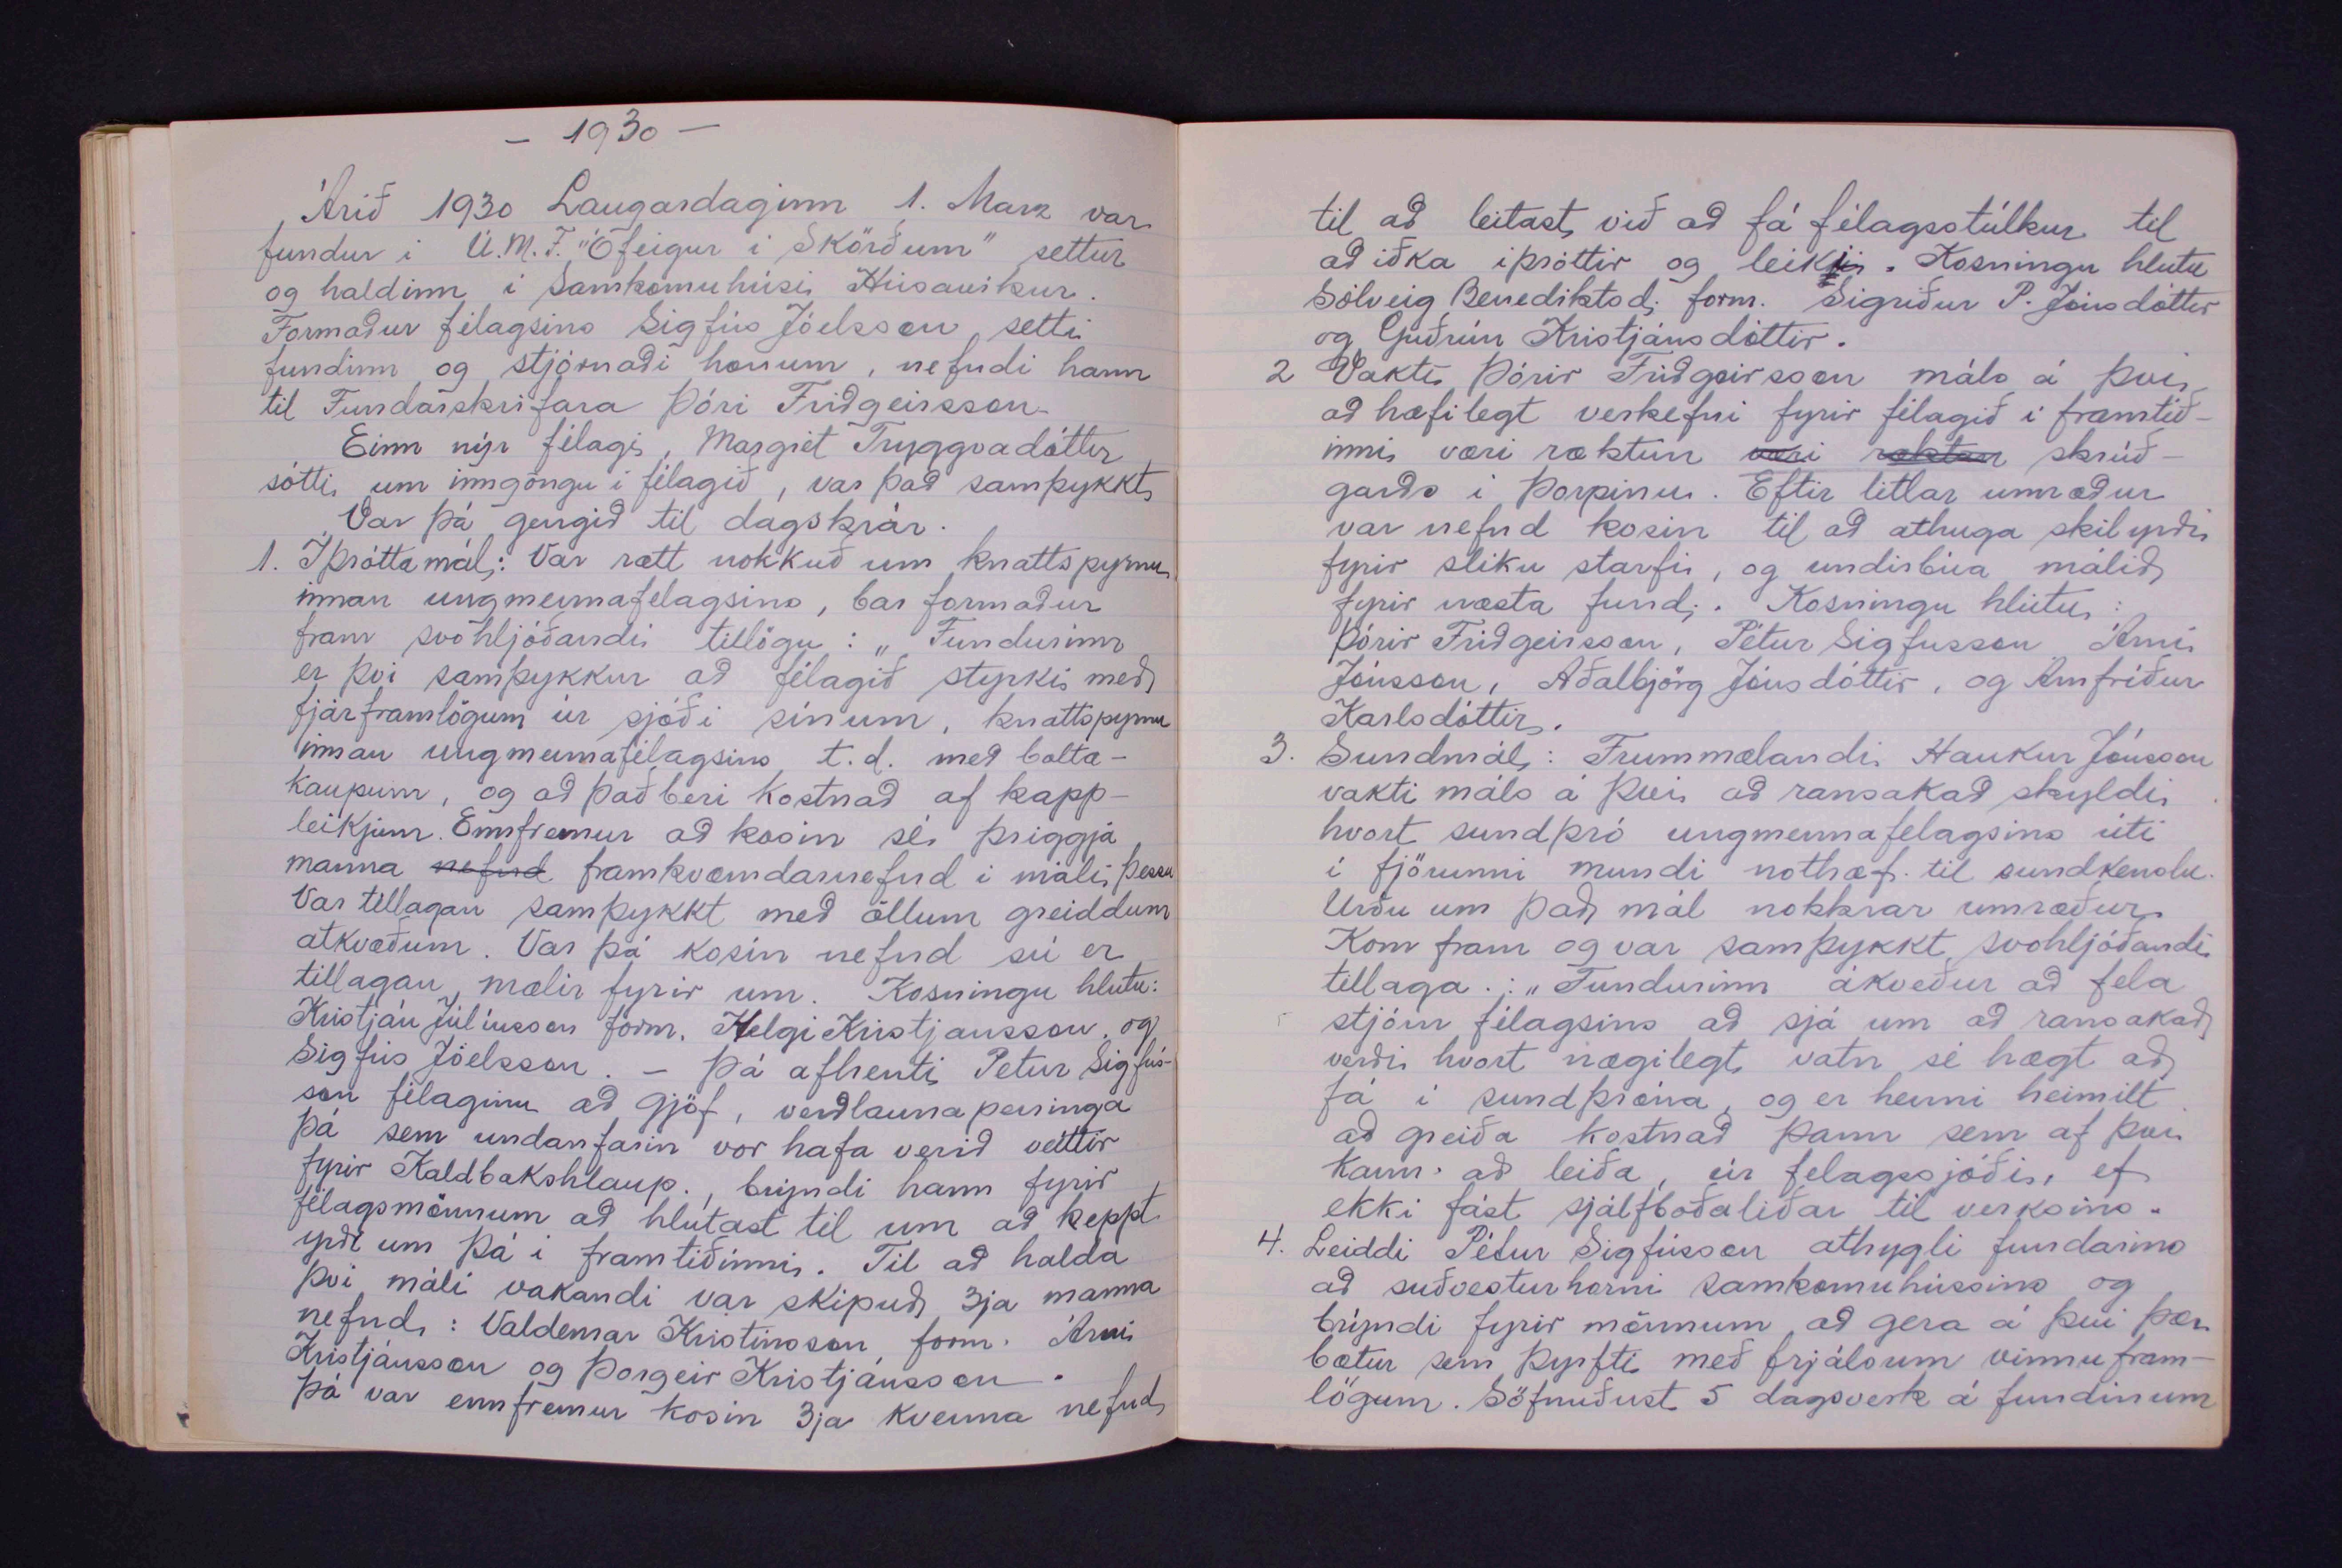 - 1930 -
Árið 1930 Laugardaginn 1. Marz var
fundur i U.M.F. "Ófeigur i Skörðum" settur
og haldinn i Samkomuhúsi Húsavikur.
Formaður félagsins Sigfús Jóelsson setti
fundinn og stjórnaði honum, nefndi hann
til Fundarskrifara Þóri Friðgeirsson.
Einn nýr félagi, Margrét Tryggvadóttir
sótti um inngöngu i félagið, var það samþykkt
Var þá gengið til dagskrár.
1. Íþróttamál: Var rætt nokkuð um knattspyrnu
innan ungmennafelagsins, bar formaður
fram svohljóðandi tillögu: „Fundurinn
er þvi samþykkur að félagið styrki með
fjárframlögum úr sjóði sinum, knattspyrnu
innan ungmennafélagsins t.d. með bolta-
kaupum, og að það beri kostnað af kapp-
leikjum. Ennfremur að kosin sé þriggja
manna nefnd framkvæmdarnefnd i máli þessu
Var tillagan samþykkt með öllum greiddum
atkvæðum. Var þá kosin nefnd sú er
tillagan mælir fyrir um. Kosningu hlutu:
Kristján Júliusson form. Helgi Kristjansson, og
Sigfús Jóelsson. - Þá afhenti Petur Sigfús-
son félaginu að gjöf, verðlaunapeninga
þá sem undanfarin vor hafa verið veittir
fyrir Kaldbakshlaup., brýndi hann fyrir
félagsmönnum að hlutast til um að keppt
yrði um þá i framtiðinni. Til að halda
þvi máli vakandi var skipuð 3ja manna
nefnd: Valdemar Kristinsson form. Árni
Kristjánsson og Þorgeir Kristjánsson.
Þá var ennfremur kosin 3ja kvenna nefnd
til að leitast við að fá félagsstúlkur til
að iðka iþróttir og leiki. Kosningu hlutu
Sólveig Benediktsd. form. Sigriður P. Jónsdóttir
og Guðrún Kristjánsdóttir.
2 Vakti Þórir Friðgeirsson máls á þvi
að hæfilegt verkefni fyrir félagið i framtið-
inni væri ræktun væri ræktun skrúð-
garðs i þorpinu. Eftir litlar umræður
var nefnd kosin til að athuga skilyrði
fyrir sliku starfi, og undirbúa málið
fyrir næsta fund. Kosningu hlutu:
Þórir Friðgeirsson, Pétur Sigfusson Árni
Jónsson, Aðalbjörg Jónsdóttir, og Arnfríður
Karlsdóttir.
3. Sundmál: Frummælandi Haukur Jónsson
vakti máls á þvi að ransakað skyldi
hvort sundþró ungmennafelagsins úti
i fjörunni mundi nothæf til sundkenslu.
Urðu um það mál nokkrar umræður
Kom fram og var samþykkt svohljóðandi
tillaga.: „Fundurinn ákveður að fela
stjórn félagsins að sjá um að ransakað
verði hvort nægilegt vatn sé hægt að
fá i sundþróna, og er henni heimilt
að greiða kostnað þann sem af þvi
kann að leiða, úr felagssjóði, ef
ekki fást sjálfboðaliðar til verksins.
4. Leiddi Pétur Sigfússon athygli fundarins
að suðvesturhorni samkomuhússins og
brýndi fyrir mönnum að gera á þvi þær
bætur sem þyrfti með frjálsum vinnufram-
lögum. Söfnuðust 5 dagsverk á fundinum